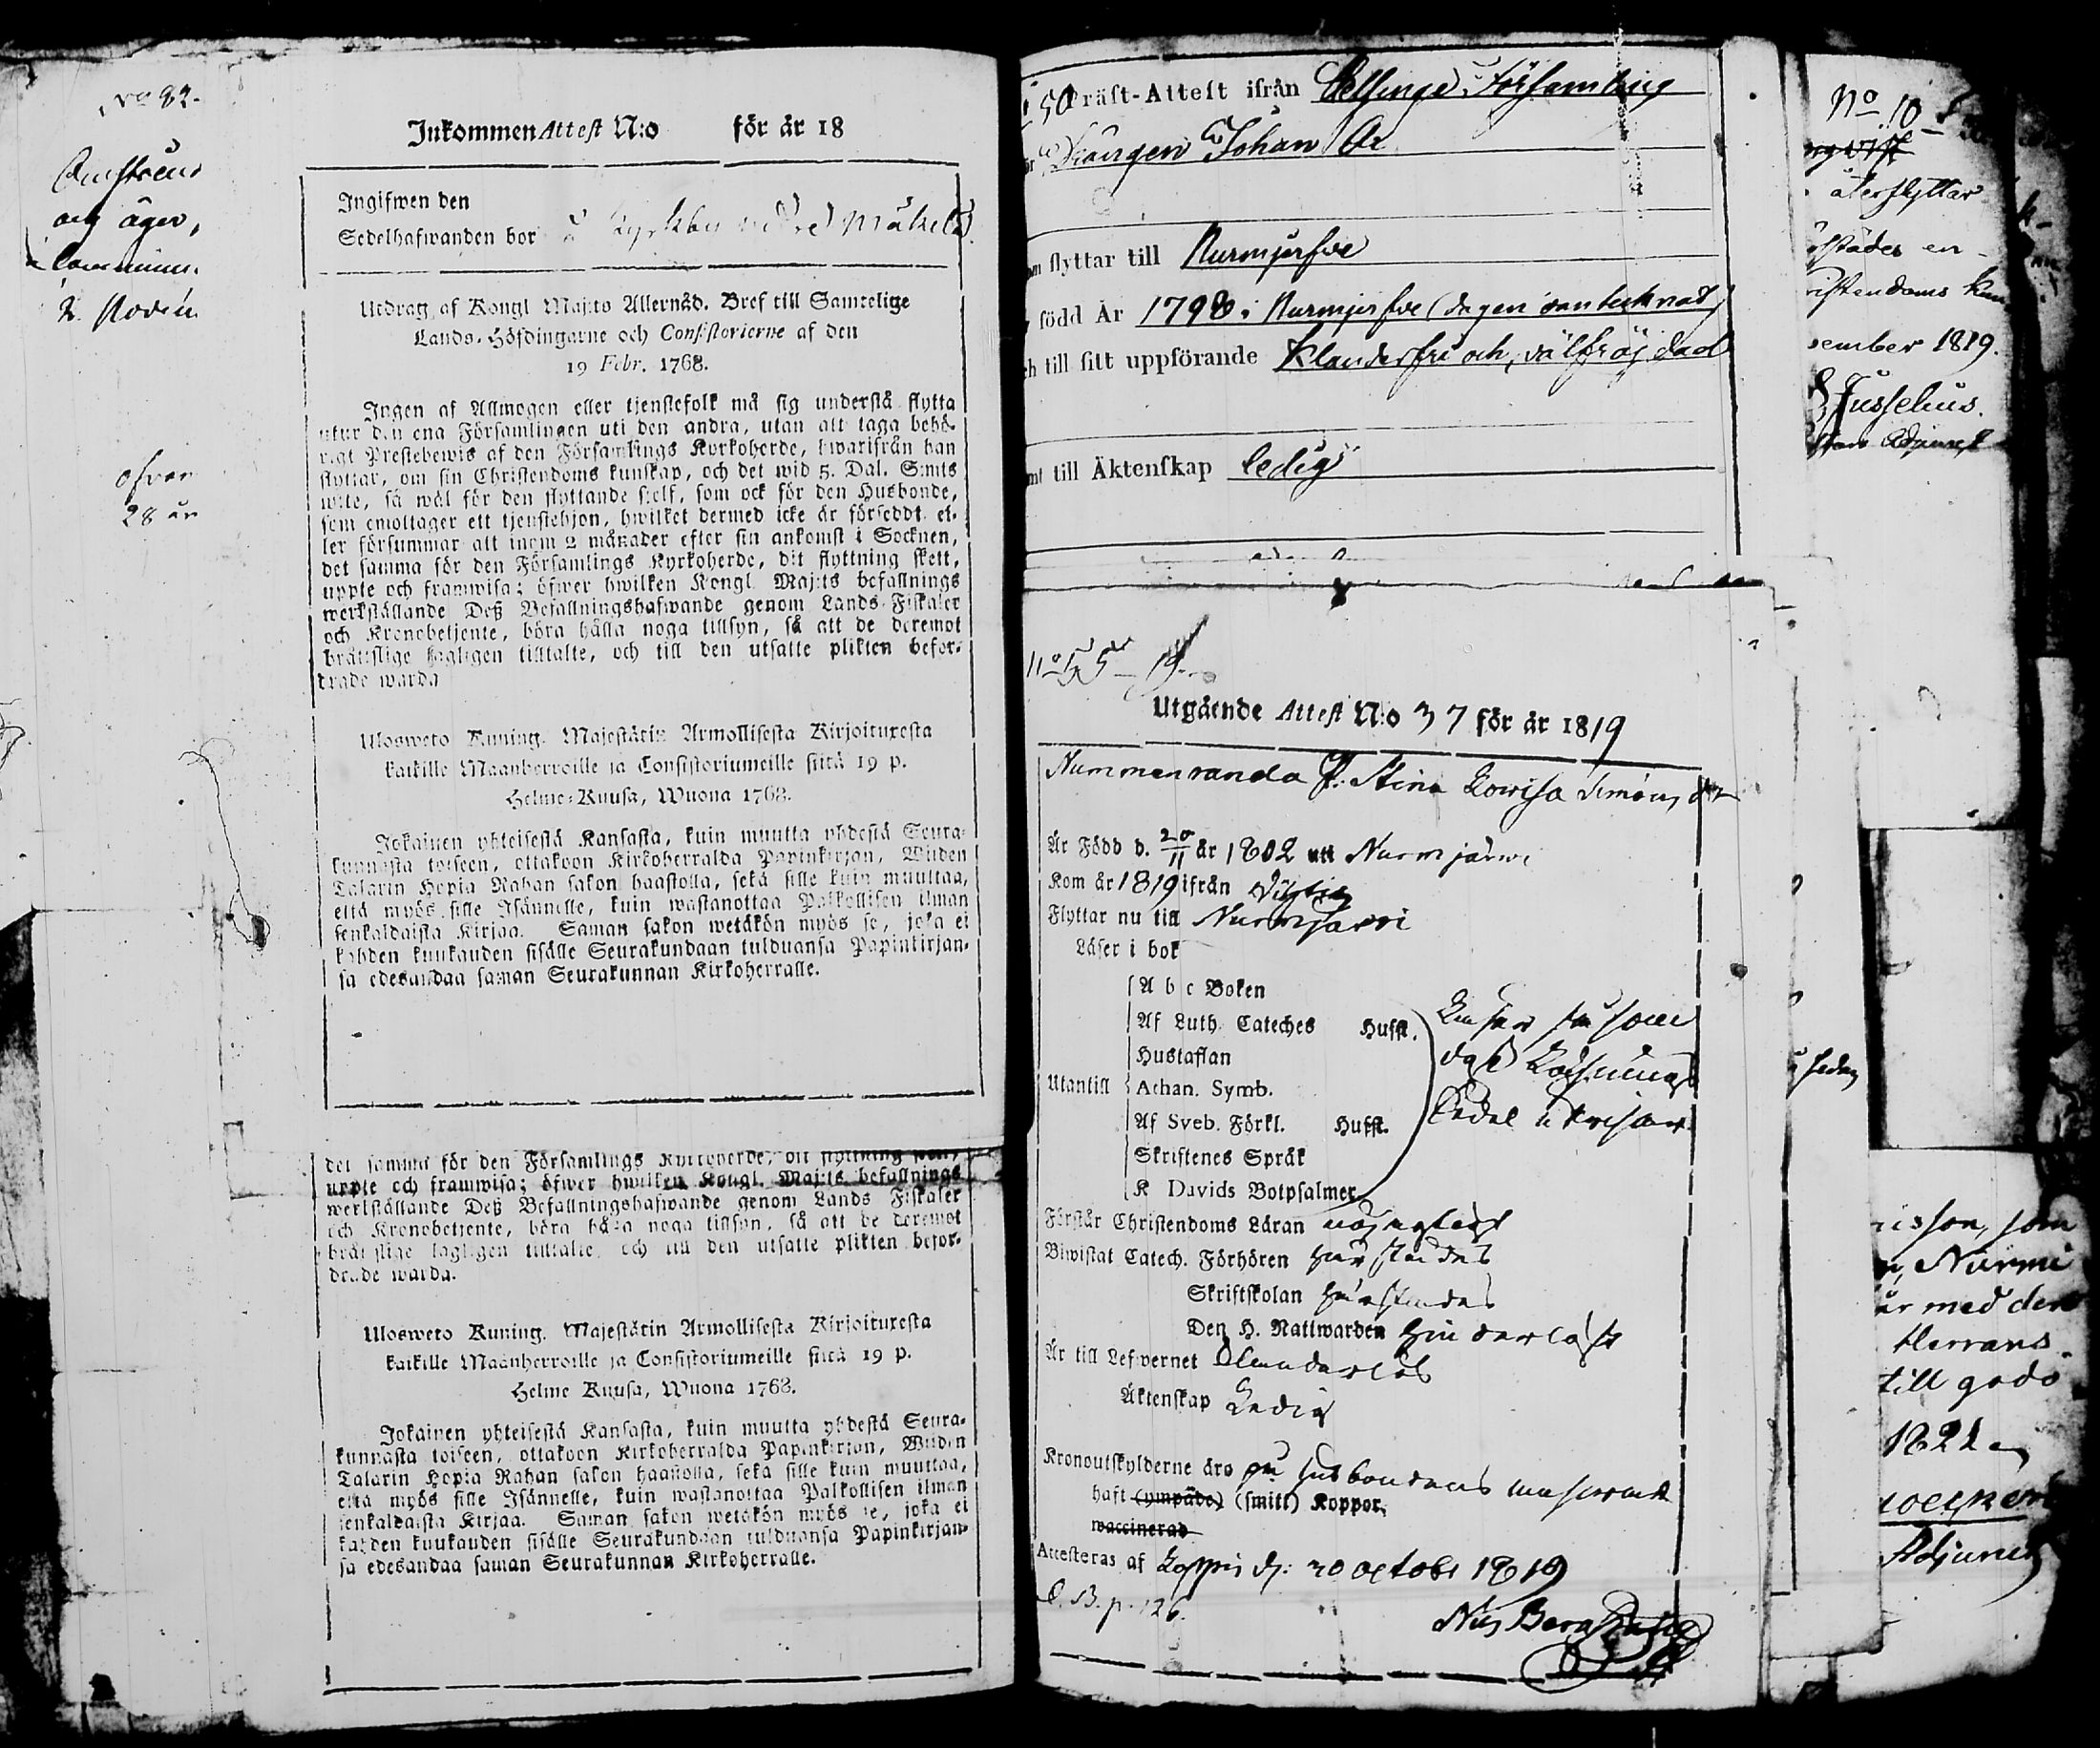 No 82.
äger,
ofvan
28 år
Inkommen Attest N:o för år 18
Ingifwen den
Sedelhafwanden bor
Utdrag af Kongl Maj:ts Allernåd. Bref till Samtelige
Lands-Höfdingarne och Consistorierne af den
19 Febr. 1768.
Ingen af Allmogen eller tjenstefolk må sig understå flytta
utur den ena Församlingen uti den andra, utan att taga behö-
rigt Prestebewis af den Församlings Kyrkoherde, hwarifrån han
flyttar, om sin Christendoms kunskap, och det wid 5. Dal. S:mts
wite, så wäl för den flyttande sjelf, som ock för den Husbonde,
som emottager ett tjenstehjon, hwilket dermed icke är försedt, el-
ler försummar att inom 2 månader efter sin ankomst i Socknen,
det samma för den Församlings Kyrkoherde, dit flyttning skett,
uppte och framwisa; öfwer hwilken Kongl. Maj:ts befallnings
werkställande Deß Befallningshafwande genom Lands-Fiskaler
och Kronobetjente, böra hålla noga tillsyn, så att de deremot
brättslige lagligen tilltalte, och till den utsatte plikten befor-
drade warda
Uloswetö Kuning. Majestätin Armollisesta Kirjoituxesta
kaikille Maanherroille ja Consistoriumeille siitä 19 p.
Helme-Kuusa, Wuona 1768.
Jokainen yhteisestä Kansasta, kuin muutta yhdestä Seura-
kunnasta toiseen, ottakoon Kirkoherralda Papinkirjan, Wiiden
Talarin Hopia Rahan sakon haastolla, sekä sille kuin muuttaa,
että myös sille Isännelle, kuin wastanottaa Palkollisen ilman
senkaldaista Kirjaa. Saman sakon wetäkön myös se, joka ei
kahden kuukauden sisälle Seurakundaan tulduansa Papinkirjan-
sa edesandaa saman Seurakunnan Kirkoherralle.
det samma för den Församlings Kyrkoherde, dit flyttning skett,
uppte och framwisa; öfwer hwilken Kongl. Maj:ts befallnings
werkställande Deß Befallningshafwande genom Lands Fiskaler
och Kronobetjente, böra hålla noga tillsyn, så att de deremot
brättslige lagligen tilltalte och till den utsatte plikten befor-
drade warda.
Uloswetö Kuning. Majestätin Armollisesta Kirjoituxesta
kaikille Maanherroille ja Consistoriumeille siitä 19 p.
Helme Kuusa, Wuona 1768.
Jokainen yhteisestä Kansasta, kuin muutta yhdestä Seura-
kunnasta toiseen, ottakoon Kirkoherralda Papinkirjan, Wiiden
Talarin Hopia Rahan sakon haastolla, sekä sille kuin muuttaa,
että myös sille Isännelle, kuin wastanottaa Palkollisen ilman
senkaldaista Kirjaa. Saman sakon wetäkön myös se, joka ei
kahden kuukauden sisälle Seurakundaan tulduansa Papinkirjan-
sa edesandaa saman Seurakunnan Kirkoherralle.
50 Präst-Attest ifrån Hellsinge Församling
Drängen Johan
flyttar till Nurmjerfve
född År 1798 i Nurmjerfve (dagen oantecknad)
till sitt uppförande Klanderfri och välfräjdad
till Äktenskap ledig
No 55 19
Utgående Attest N:o 37 för år 1819
P. Stina Lowisa Simonsdr
Är Född d. 20/11 år 1802 uti Nurmjärwi
Kom år 1819 ifrån Wigtis
Flyttar nu till Nurmjärwi
Läser i bok
A b c Boken
Af Luth. Cateches Hufst.
Hustaflan
Utantill Athan. Symb.
Af Sveb. Förkl. Hufst.
Skriftenes Språk
K Davids Botpsalmer
Läser så som
Förstår Christendoms Läran nöjagtigt
Biwistat Catech. Förhören härstädes
Skriftskolan härstädes
Den H. Nattwarden hinderlöst
Är till Lefwernet Klanderlös
Äktenskap Ledig
Kronoutskylderne äro på husbondens
haft (ympade) (smitt) Koppor.
waccinerad
Attesteras af Loppis d. 20 octobr 1819
C. B. p. 126.
Nils
No 10
återflyttar
städes en
ristendoms kun
ember 1819.
Jusselius.
Adjunct
sedan
sson, som
Nurmi
är med den
Herrans
till godo
1821
Adjunct